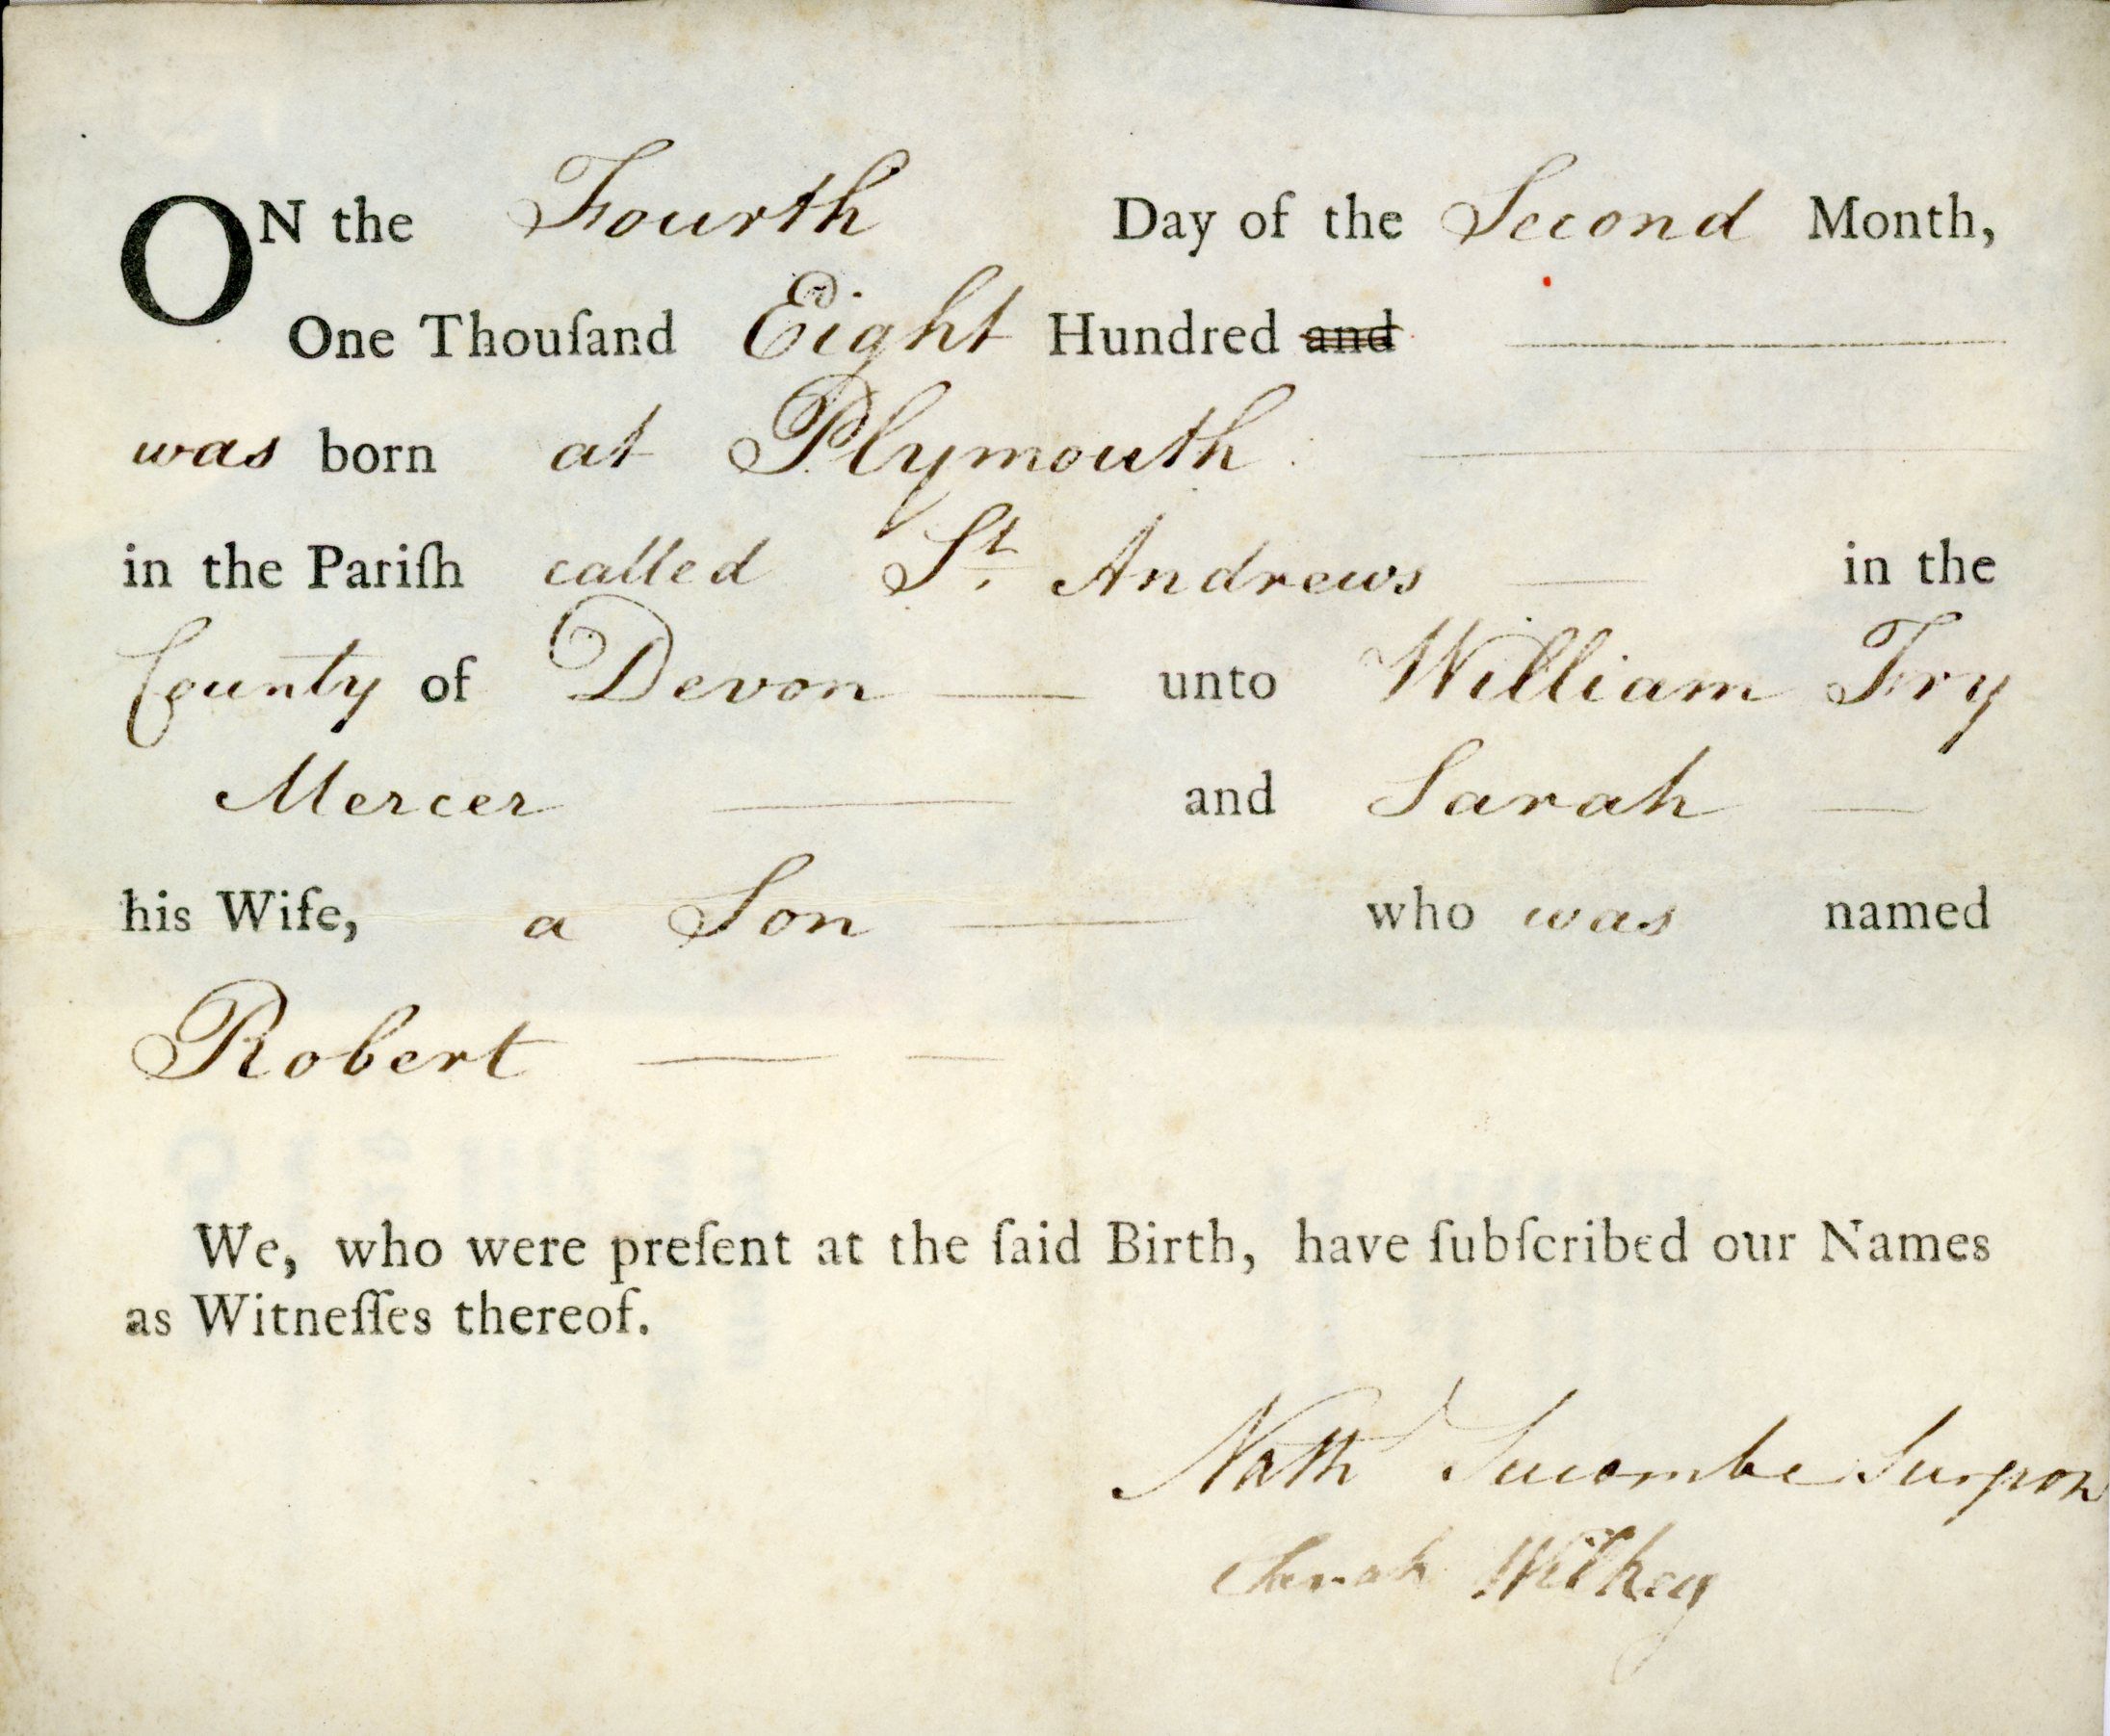 ON the Fourth Day of the Second Month,
One Thouſand Eight Hundred and
was born at Plymouth
in the Pariſh called St. Andrews in the
County of Devon unto William Fry
Mercer and Sarah
his Wife, a Son who was named
Robert
We, who were preſent at the ſaid Birth, have ſubſcribed our Names
as Witneſſes thereof.
Nath Surgeon
Sarah